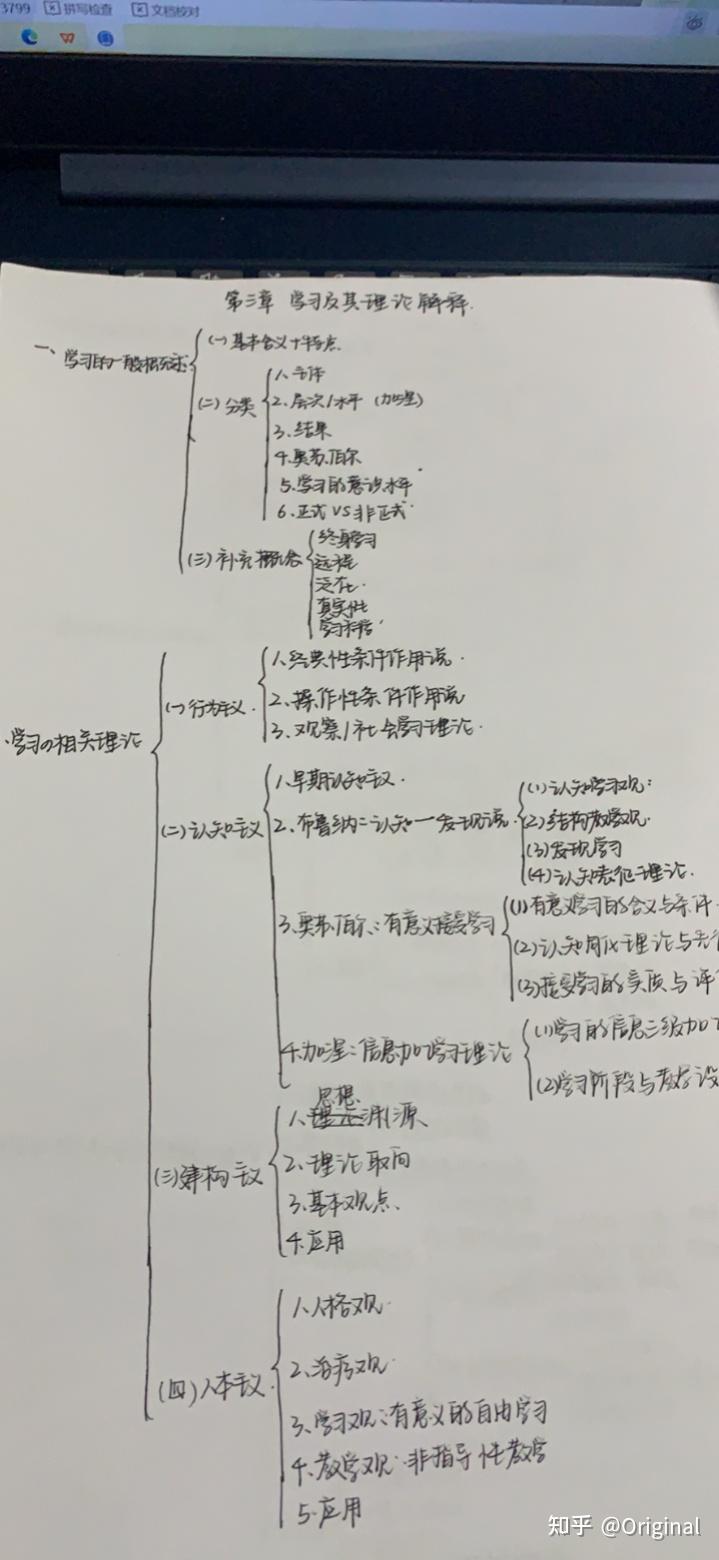 3799 拼写检查 文档校对
第三章 学习及其理论解释.
一、学习的一般概述
(一)基本含义+特点
(二)分类
1、主体
2.层次/水平 (加涅)
3.结果
4.奥苏伯尔
5.学习的意识水平
6.正式VS非正式
(三)补充概念
终身学习
远程
泛在
真实性
学习科学
学习の相关理论
(一)行为主义.
1.经典性条件作用说.
2.操作性条件作用说
3.观察/社会学习理论.
(二)认知主义
1.早期认知主义.
2.布鲁纳:认知—发现说.
(1)认知学习观:
(2)结构教学观.
(3)发现学习
(4)认知表征理论.
3.奥苏伯尔:有意义接受学习
(1)有意义学习的含义与条件
(2)认知同化理论与先行
(3)接受学习的实质与评
4.加涅:信息加工学习理论
(1)学习的信息三级加工
(2)学习阶段与教学设
(三)建构主义
思想
1、理论渊源、
2.理论取向
3.基本观点、
4.应用
(四)人本主义.
1.人格观.
2.治疗观.
3.学习观:有意义的自由学习
4.教学观:非指导性教学
5.应用
知乎 @Original